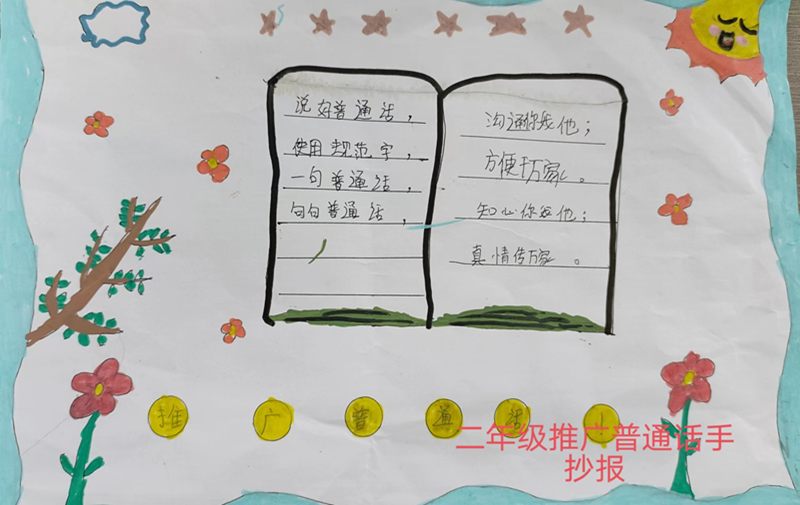 说好普通话，
使用规范字，
一句普通话，
句句普通话，
沟通你我他；
方便千万家。
知心你我他；
真情传万家。
推广普通话！
二年级推广普通话手
抄报